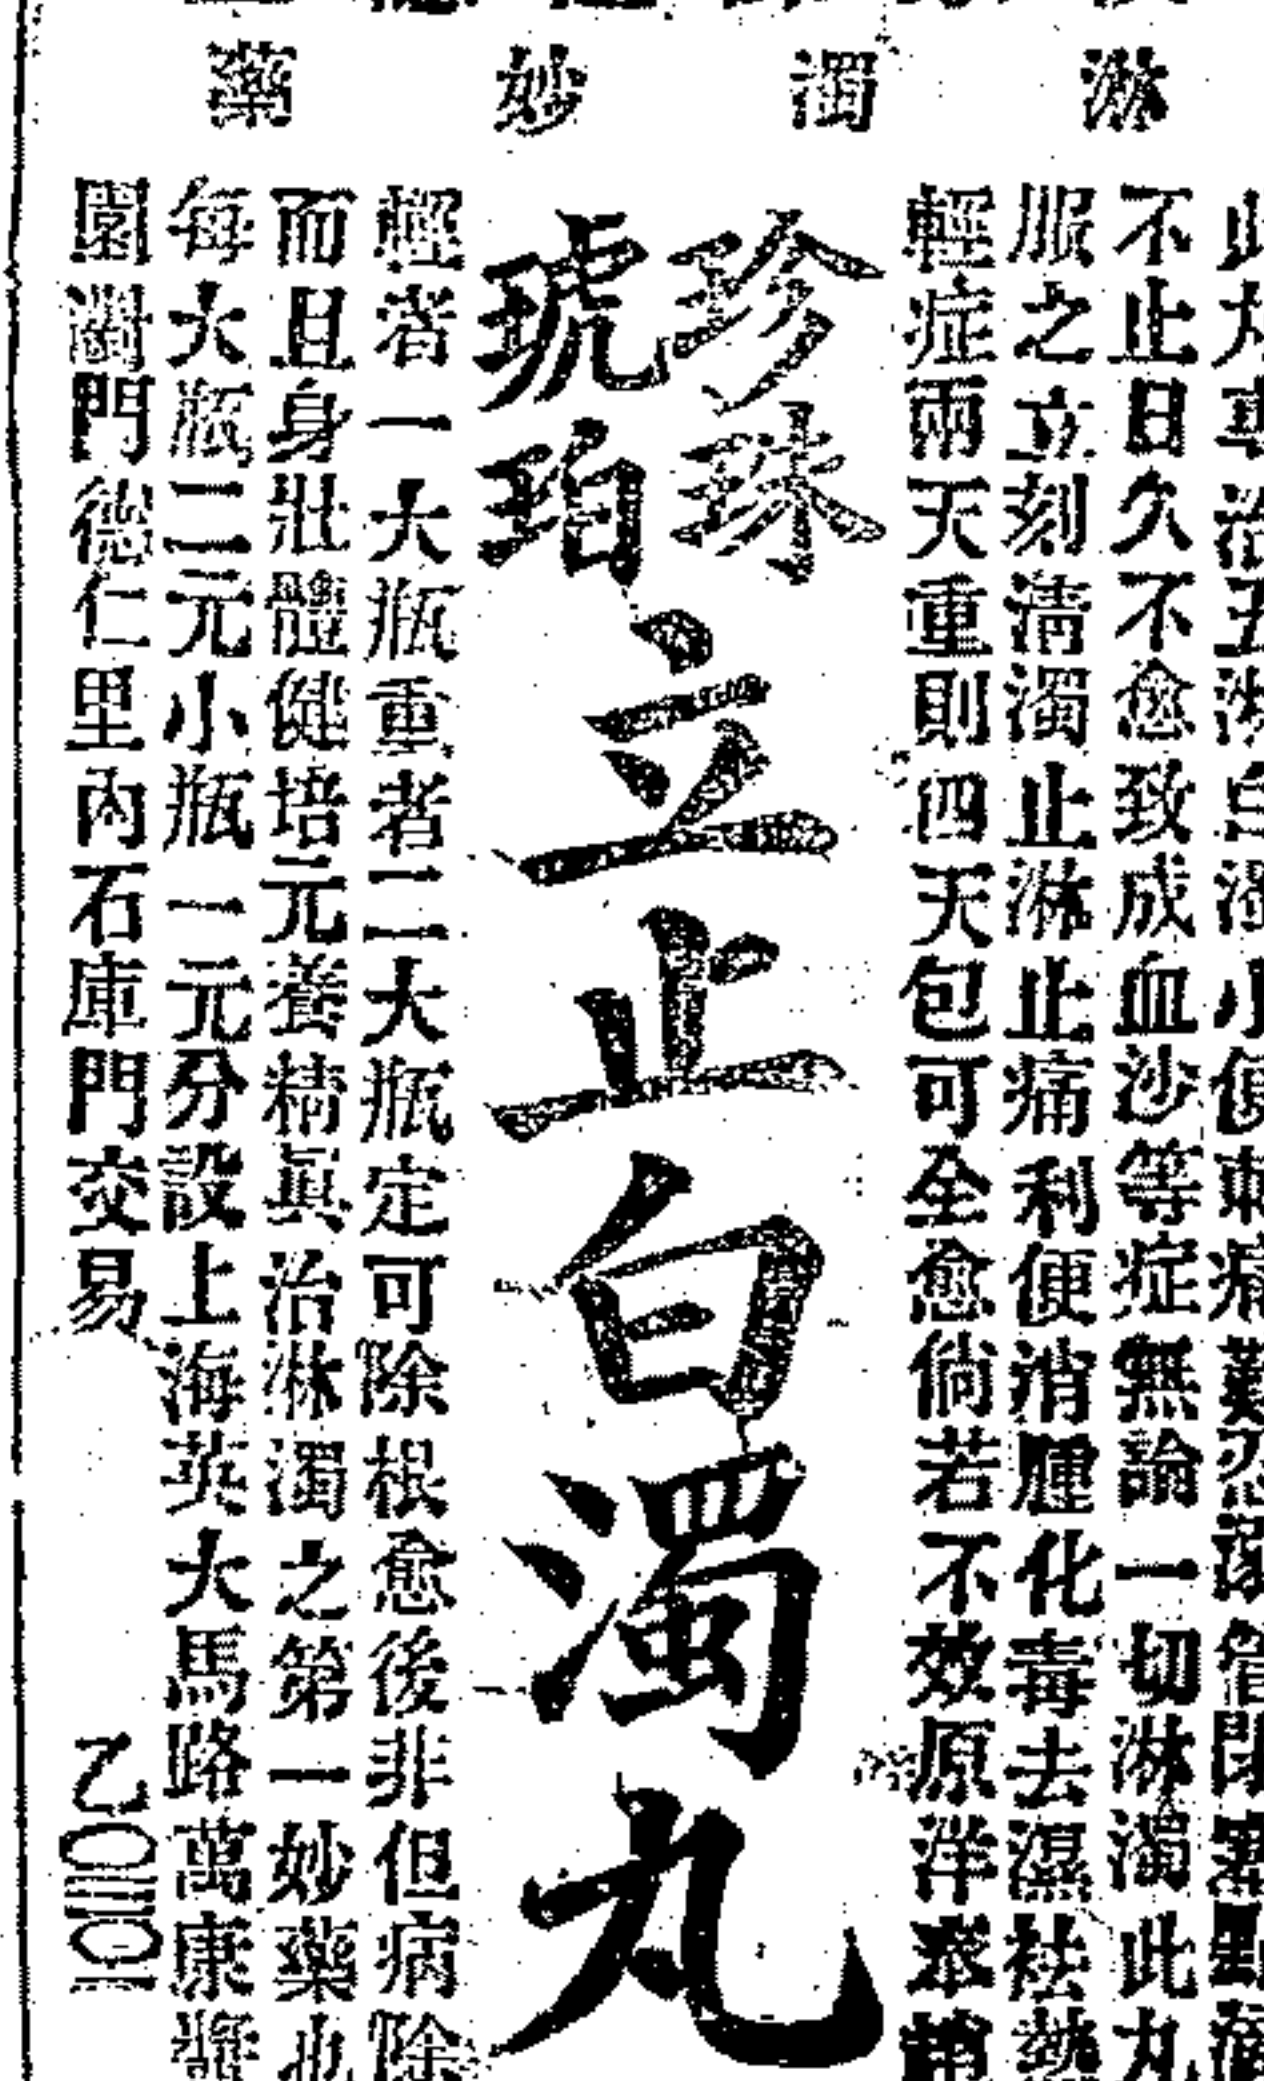 淋濁妙藥
此丸專治五淋白濁小便刺痛難忍溺管閉塞點滴
不止日久不愈致成血沙等症無論一切淋濁此丸
服之立刻清濁止淋止痛利便消腫化毒去濕祛熱
輕症兩天重則四天包可全愈倘若不效原洋奉趙
珍珠
琥珀
立止白濁丸
輕者一大瓶重者二大瓶定可除根愈後非但病除
而且身壯體健培元養精眞治淋濁之第一妙藥也
每大瓶二元小瓶一元分設上海英大馬路萬康醬
園衖門德仁里內石庫門交易
乙〇三三〇一